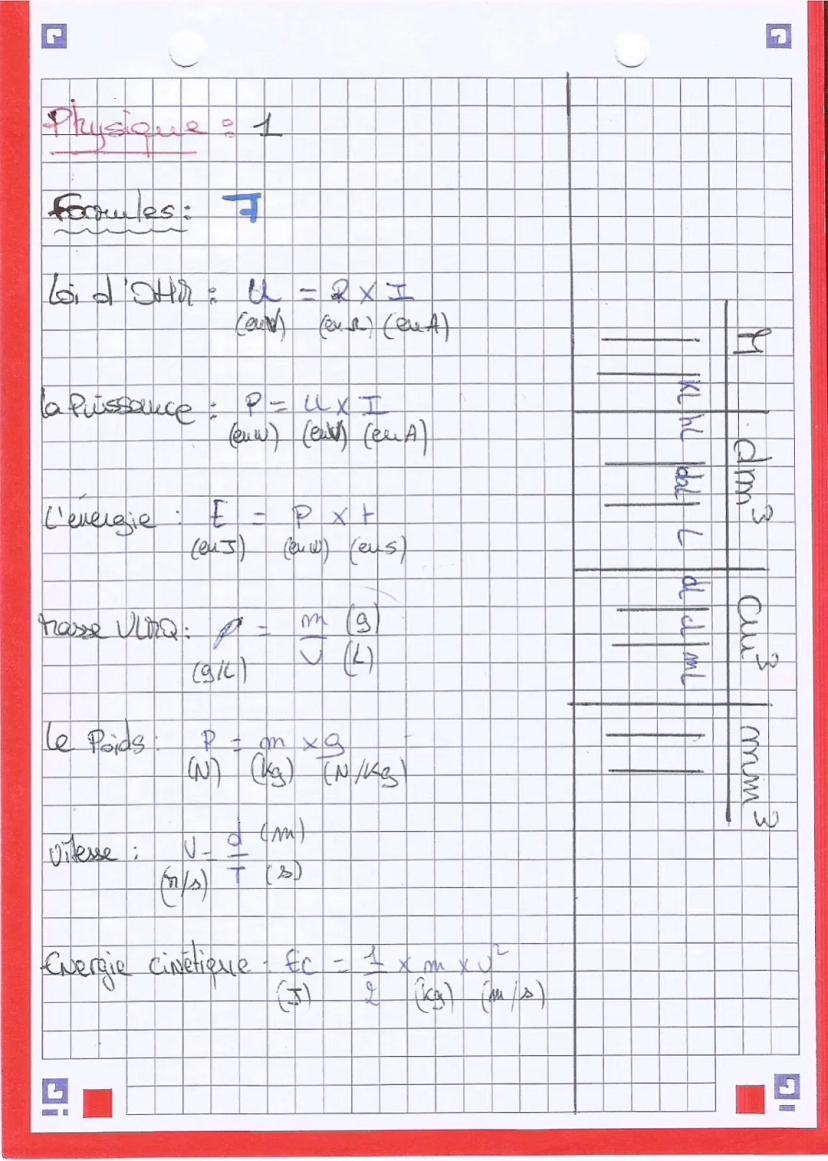 Physique : 1
Formules : 7
Loi d'OHM : U = R x I
(en V) (en Ω) (en A)
la Puissance : P = U x I
(en W) (en V) (en A)
L'énergie : E = P x t
(en J) (en W) (en s)
Masse VLMQ : ρ = m (g)
V (L)
(g/L)
Le Poids : P = m x g
(N) (kg) (N/kg)
Vitesse : V = d (m)
T (s)
(m/s)
Energie cinétique : Ec = 1/2 x m x v²
(J) (kg) (m/s)
M dm³ cm³ mm³
kl hl dal L dl cl ml